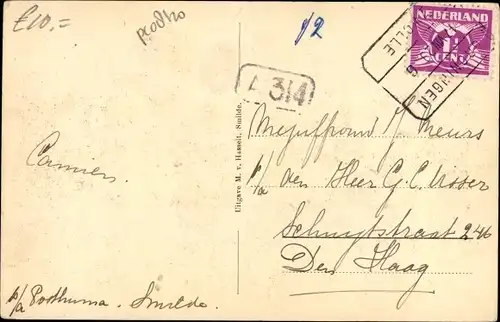 £10,=
12
NEDERLAND
1½
CENT
A 314
Uitgave M. v. Hasselt, Smilde.
Mejuffrouw J. Meurs
p/a den Heer G. C. Visser
Schuytstraat 246
Den Haag
p/a Posthuma. Smilde.